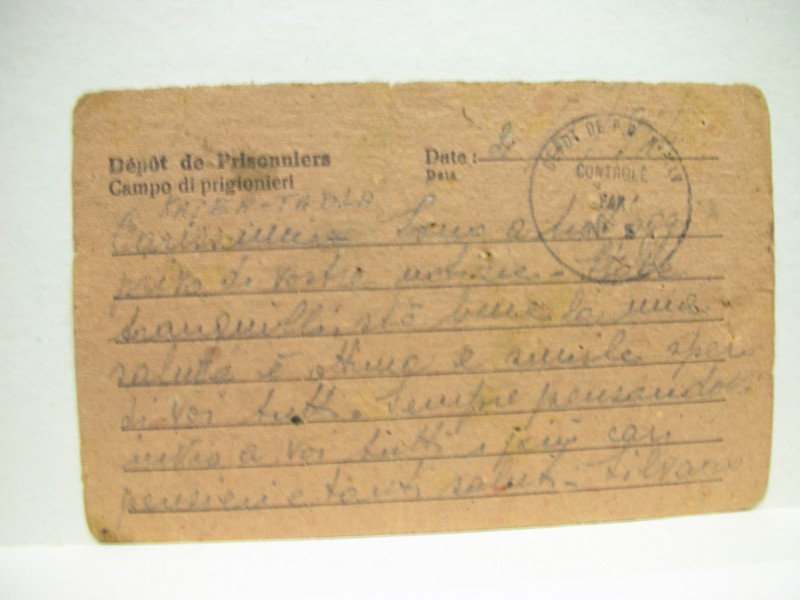 Dépôt de Prisonniers
Campo di prigionieri
Date: 2
Data
DEPOT DE P.G. N°
CONTROLÉ
PAR
KASBA-TADLA
Carissimi Sono a tutt'oggi
privo di vostre notizie. State
tranquilli, stò bene la mia
salute è ottima e simile spero
di voi tutti. Sempre pensandovi
invio a voi tutti i più cari
pensieri e tanti saluti. Silvano